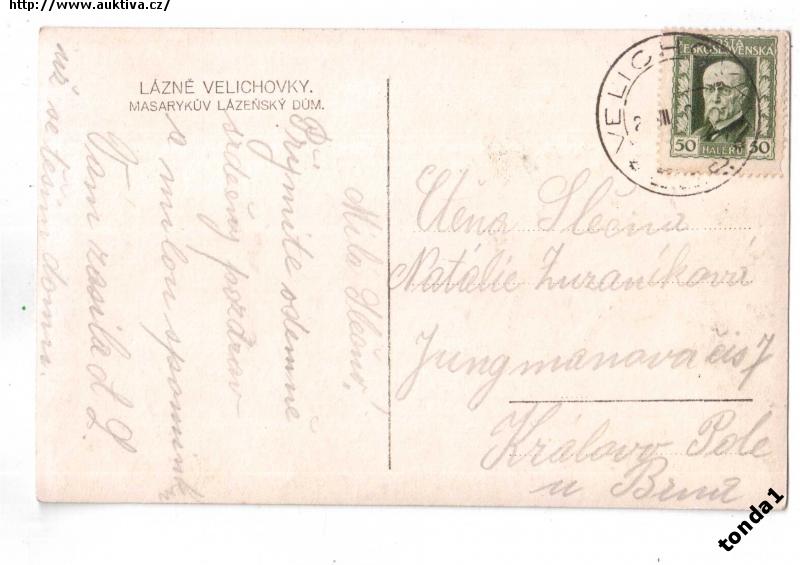 http://www.auktiva.cz/
LÁZNĚ VELICHOVKY.
MASARYKŮV LÁZEŇSKÝ DŮM.
Milá Slečno!
Přijmite odemně
srdečný pozdrav
a milou vpomínk
Vám zasílá L. P.
už se těším domu.
POŠTA
ČESKOSLOVENSKÁ
50 HALÉŘŮ 50
VELICH
Ctěná Slečna
Natálie Zuzaníková
Jungmanova čis 7
Královo Pole
u Brna
tonda1